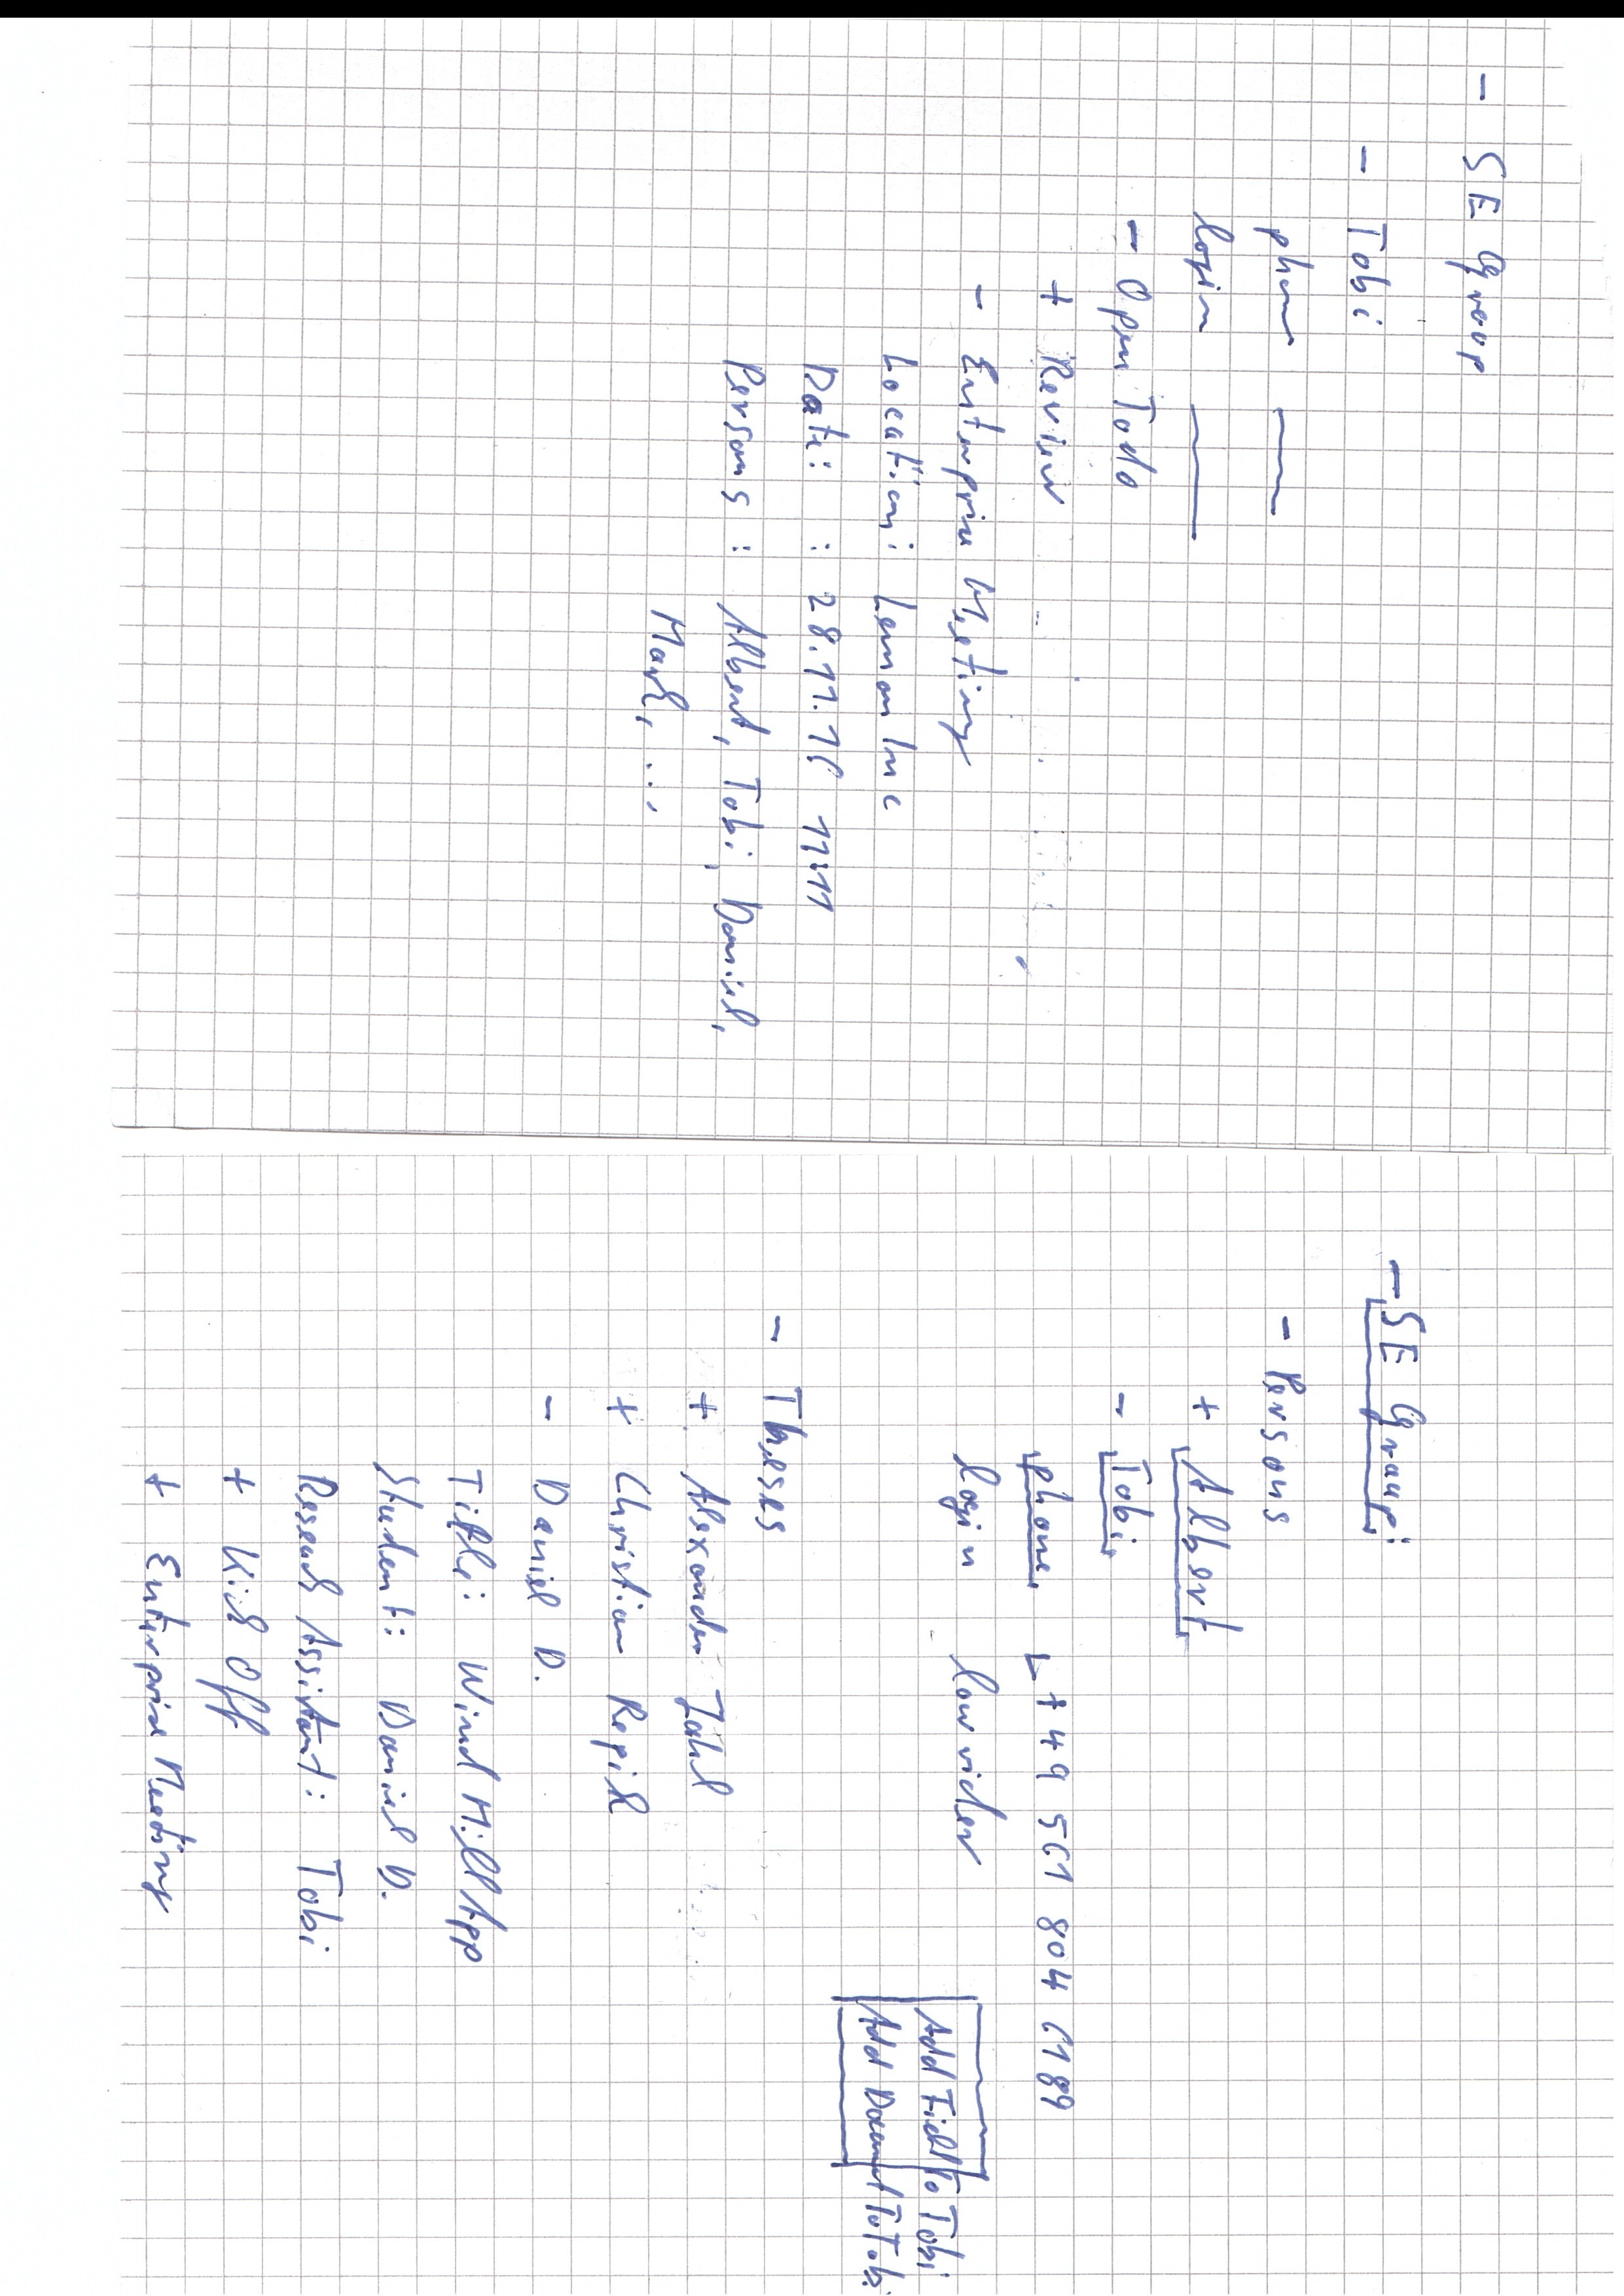 - SE Group
- Tobi
phone
login
- Open Todo
+ Review
- Enterprise Meeting
Location: Lemon Inc
Date: : 28.11.16 11:11
Persons : Albert, Tobi, Daniel,
Mark, ...,
- SE Group:
- Persons
+ Albert
- Tobi
phone +49 561 804 6189
login lowrider
Add Field To Tobi
Add Document To Tobi
- Theses
+ Alexander Jahl
+ Christian
- Daniel D.
Title: Wind Mill App
Student: Daniel D.
Research Assistant: Tobi
+ Kick Off
+ Enterprise Meeting